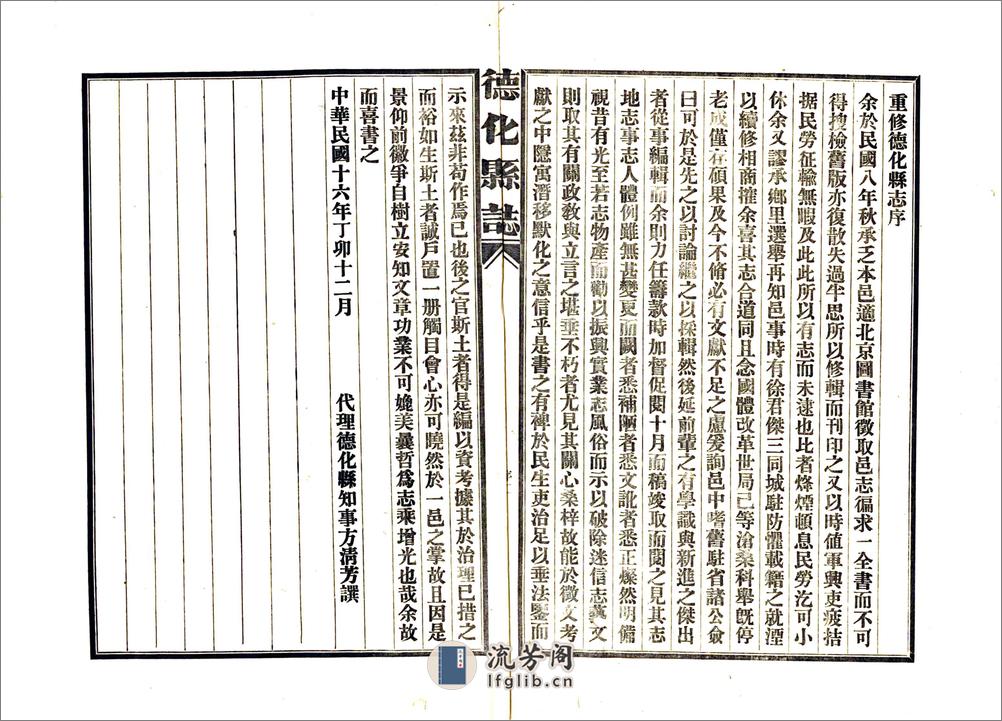 重修德化縣志序
余於民國八年秋承乏本邑適北京圖書館徵取邑志徧求一全書而不可
得搜檢舊版亦復散失過半思所以修輯而刊印之又以時値軍興吏疲拮
据民勞征輸無暇及此此所以有志而未逮也比者烽煙頓息民勞汔可小
休余又謬承鄉里選舉再知邑事時有徐君傑三同城駐防懼載籍之就湮
以續修相商搉余喜其志合道同且念國體改革世局已等滄桑科舉旣停
老成僅存碩果及今不脩必有文獻不足之慮爰詢邑中耆舊駐省諸公僉
曰可於是先之以討論繼之以採輯然後延前輩之有學識與新進之傑出
者從事編輯而余則力任籌款時加督促閱十月而稿竣取而閱之見其志
地志事志人體例雖無甚變更而闕者悉補陋者悉文訛者悉正燦然明備
視昔有光至若志物產而勸以振興實業志風俗而示以破除迷信志藝文
則取其有關政敎與立言之堪垂不朽者尤見其關心桑梓故能於徵文考
獻之中隱寓潛移默化之意信乎是書之有裨於民生吏治足以垂法鑒而
德化縣誌
序
示來茲非苟作焉已也後之官斯土者得是編以資考據其於治理已措之
而裕如生斯土者誠戶置一册觸目會心亦可曉然於一邑之掌故且因是
景仰前徽爭自樹立安知文章功業不可媲美曩哲爲志乘增光也哉余故
而喜書之
中華民國十六年丁卯十二月
代理德化縣知事方淸芳譔
流芳阁
lfglib.cn